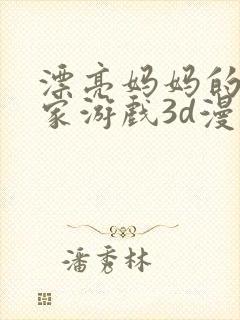 漂亮妈妈的
家游戏3d漫
潘秀林